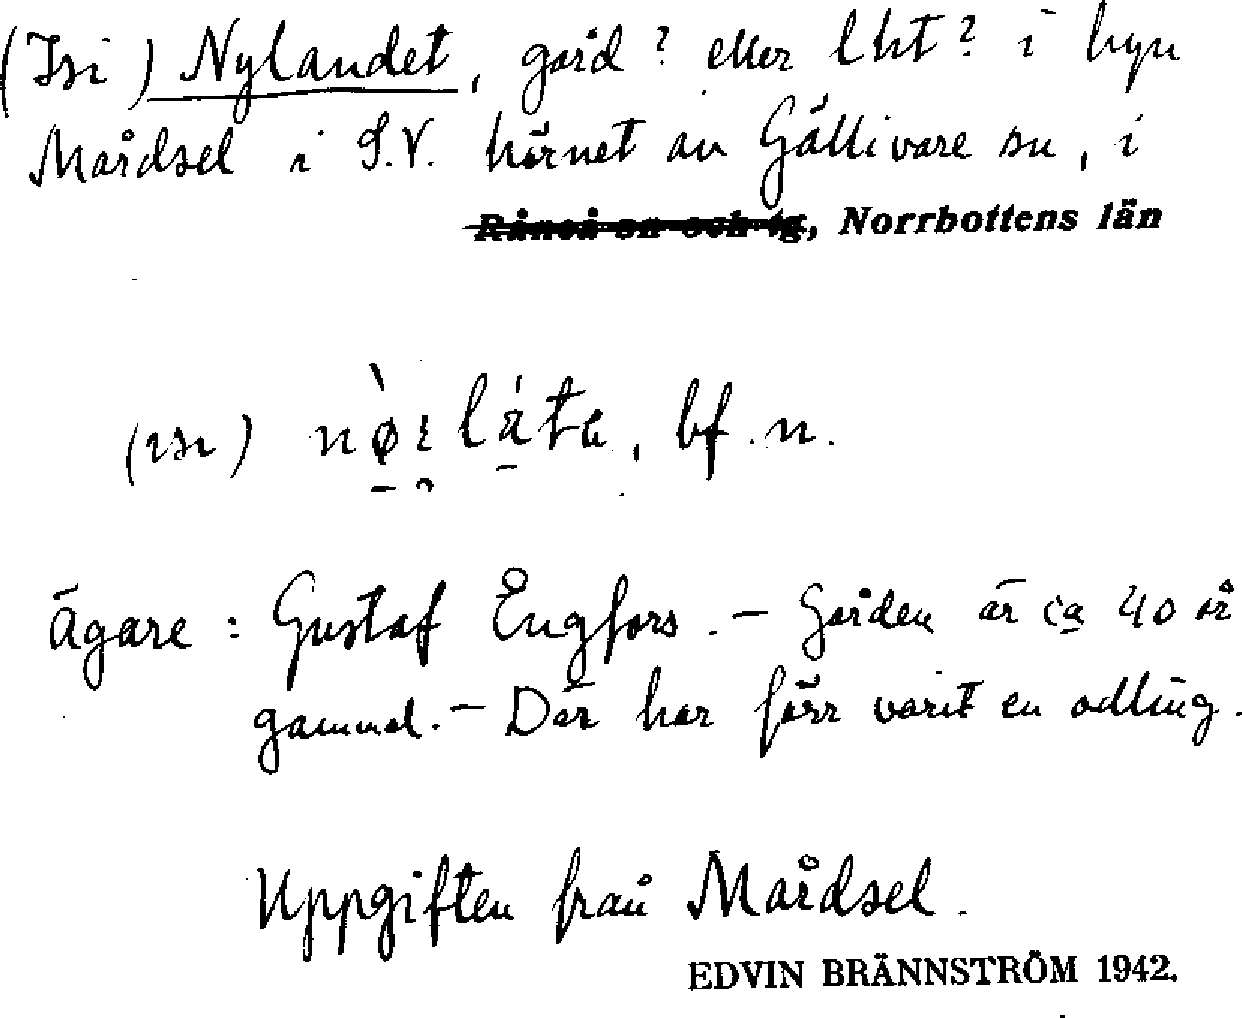 (Isi) Nylandet, gård? eller lht? i byn
Mårdsel i S.V. hörnet av Gällivare sn, i
Råneå sn och tg, Norrbottens län
(ɪsɪ) bf. n.
Ägare: Gustaf Engfors. – Gården är ca 40 år
gammal. – Där har förr varit en odling.
Uppgiften från Mårdsel.
EDVIN BRÄNNSTRÖM 1942.